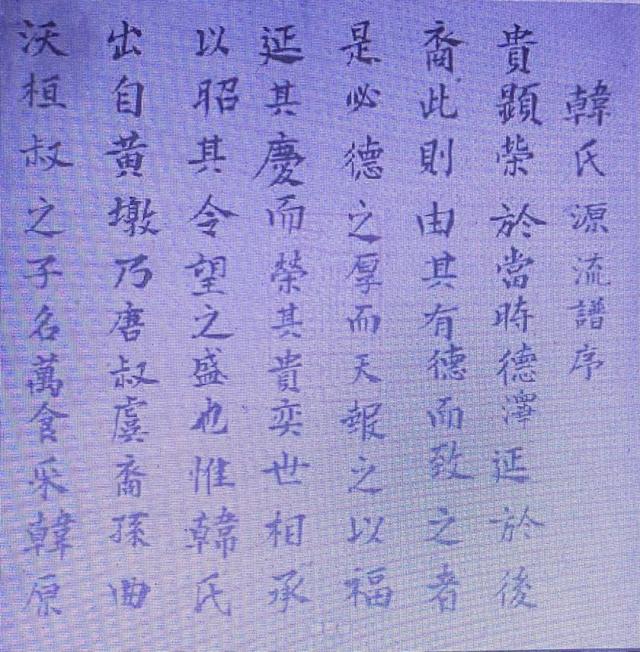 韓氏源流譜序
貴顯榮於當時德澤延於後
裔此則由其有德而致之者
是必德之厚而天報之以福
延其慶而榮其貴奕世相承
以昭其令望之盛也惟韓氏
出自黃墩乃唐叔虞裔孫曲
沃桓叔之子名萬食采韓原